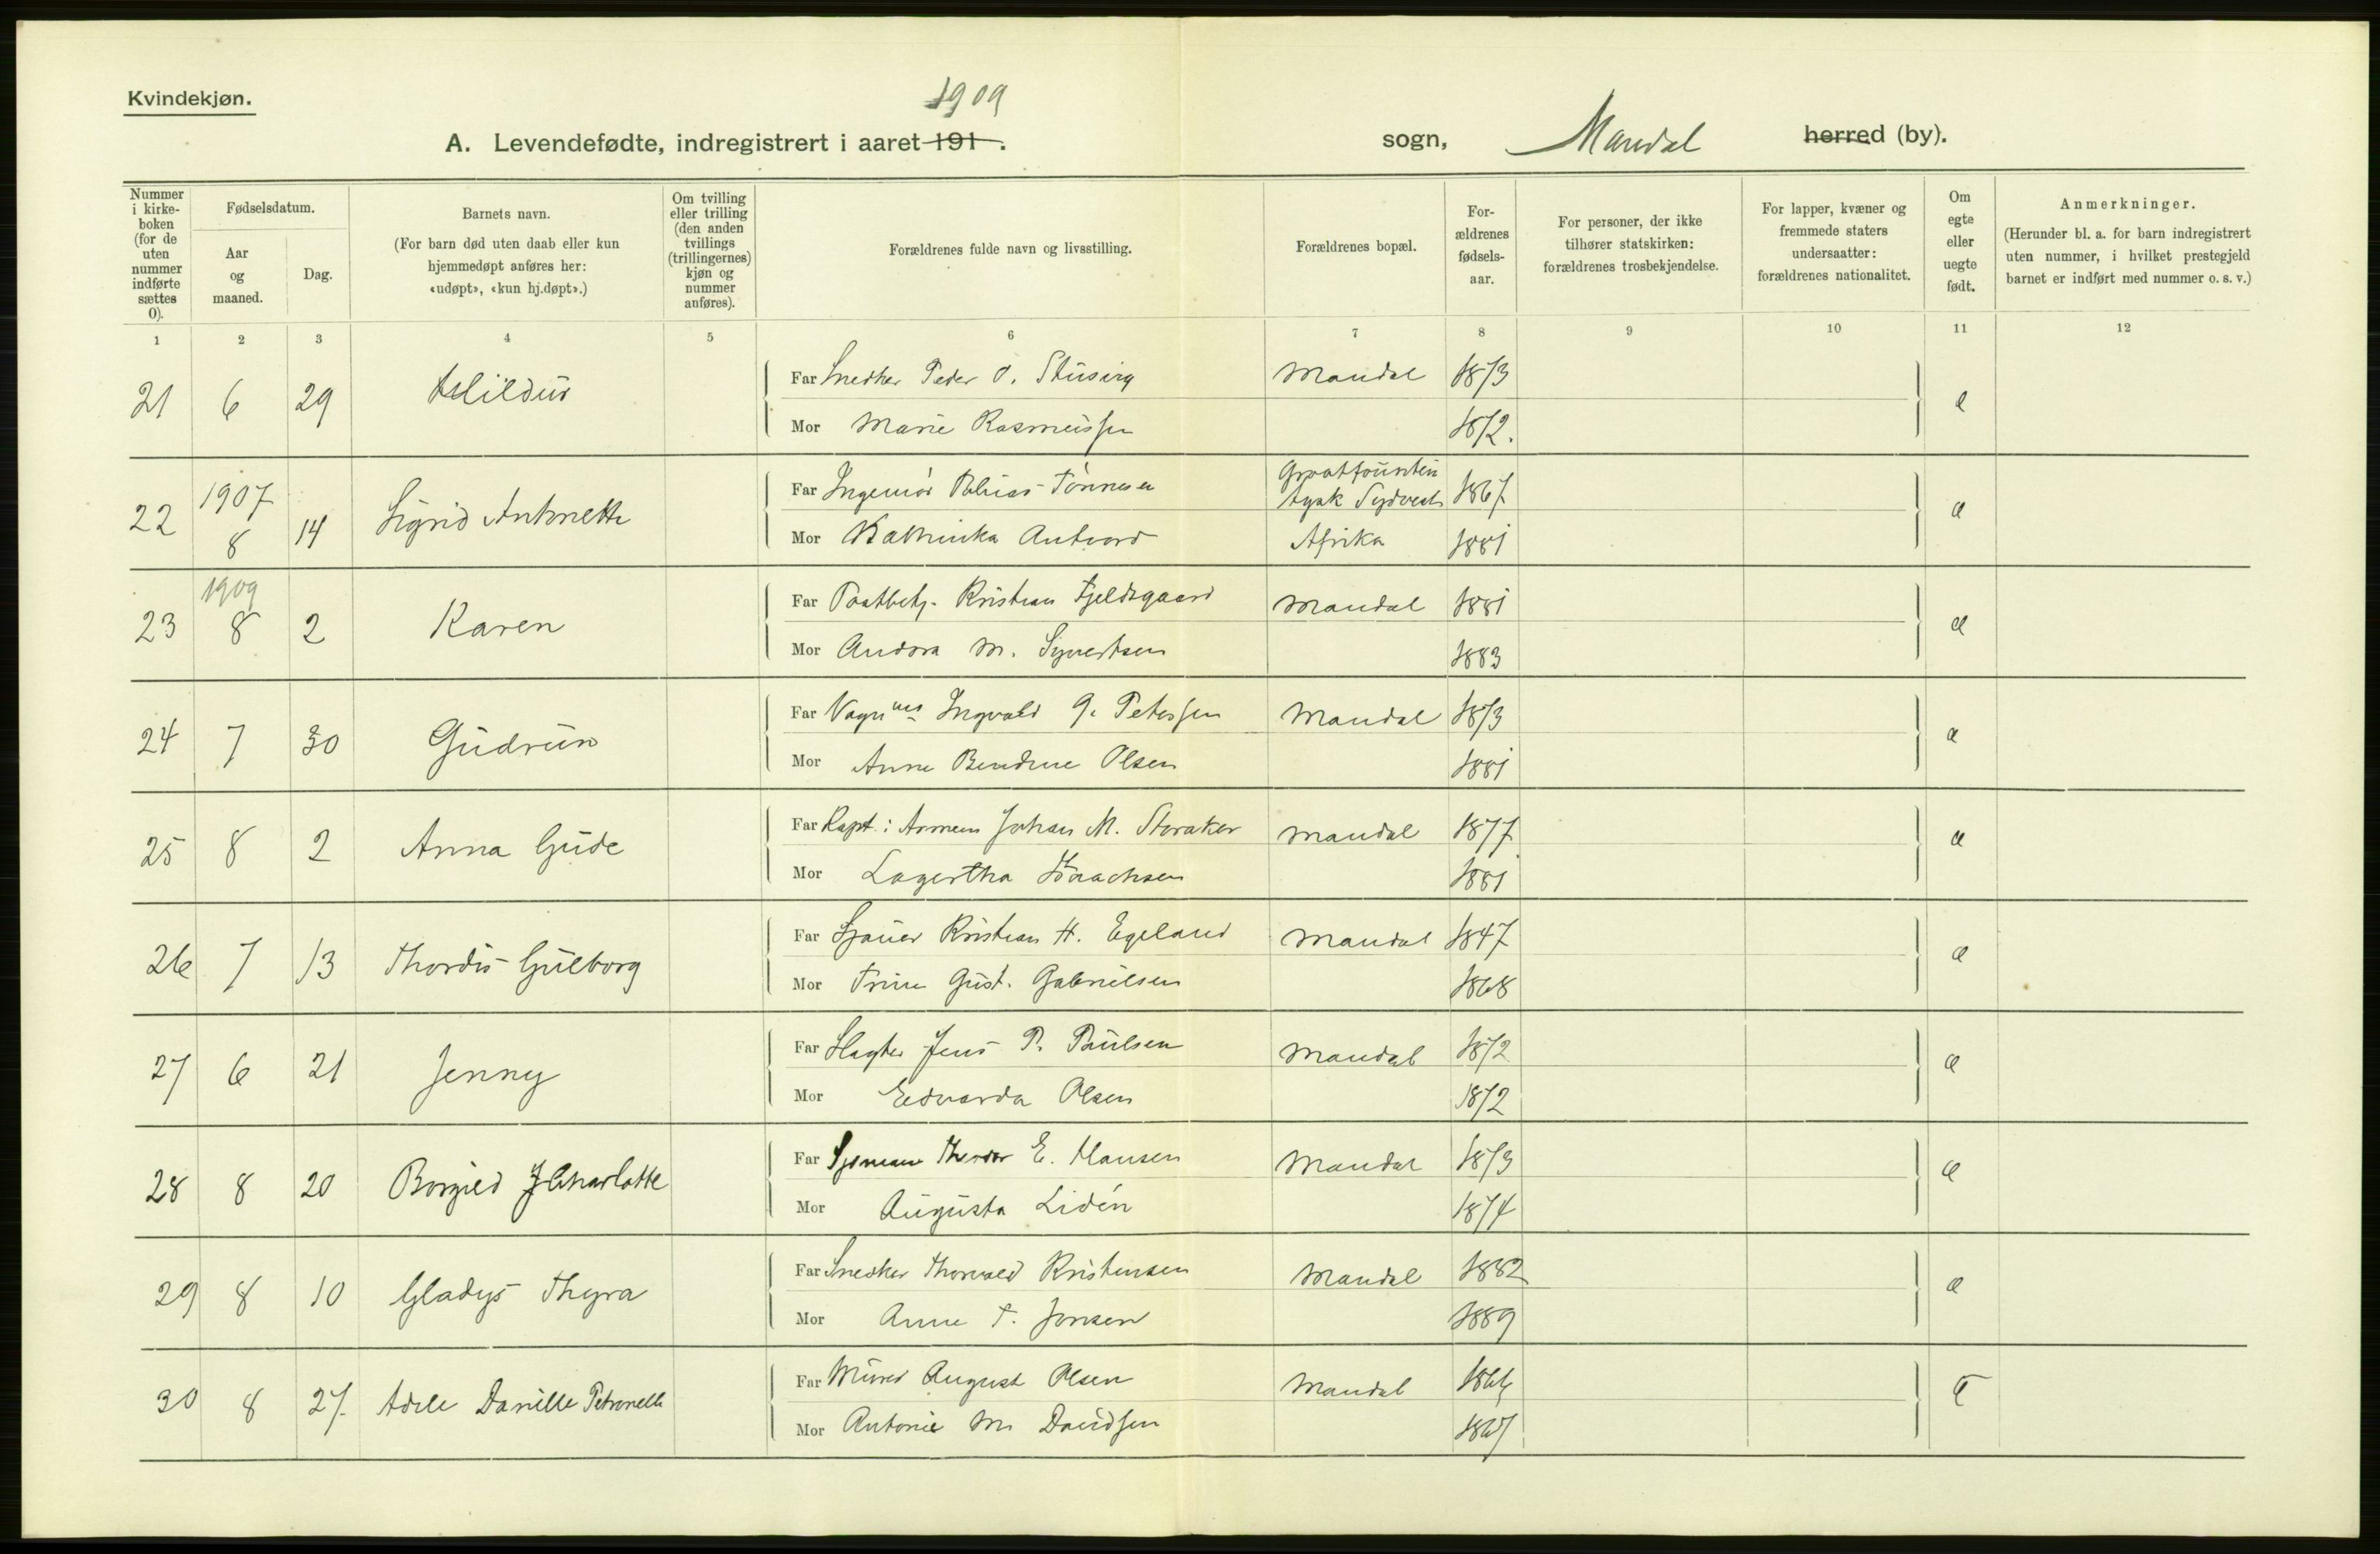 Kvindekjøn.
1909
A. Levendefødte, indregistrert i aaret 191 .
sogn, Mandal herred (by).
Nummer i kirke-boken (for de uten nummer indførte sættes 0).
Fødselsdatum.
Aar og maaned.
Dag.
Barnets navn.
(For barn død uten daab eller kun hjemmedøpt anføres her: «udøpt», «kun hj.døpt».)
Om tvilling eller trilling (den anden tvillings (trillingernes) kjøn og nummer anføres).
Forældrenes fulde navn og livsstilling.
Forældrenes bopæl.
For-ældrenes fødsels-aar.
For personer, der ikke tilhører statskirken: forældrenes trosbekjendelse.
For lapper, kvæner og fremmede staters undersaatter: forældrenes nationalitet.
Om egte eller uegte født.
Anmerkninger.
(Herunder bl. a. for barn indregistrert uten nummer, i hvilket prestegjeld barnet er indført med nummer o. s. v.)
1 2 3 4 5 6 7 8 9 10 11 12
21 6 29 Hildur Far Snedker Peder O. Stusvig Mandal 1873 e
Mor Marie Rasmussen 1872.
22 1907 8 14 Sigrid Antonette Far Ingeniør Tobias Tønnesen Grootfountein Tysk Sydvest 1867 e
Mor Kathinka Antvord Afrika 1881
23 1909 8 2 Karen Far Postbetj. Kristian Fjeldsgaard Mandal 1881 e
Mor Andora M. Syvertsen 1883
24 7 30 Gudrun Far Ingvald G. Peterssen Mandal 1873 e
Mor Anne Bendine Olsen 1881
25 8 2 Anna Gude Far Kapt. i Armeen Johan M. Storaker Mandal 1877 e
Mor Lagertha Isaachsen 1881
26 7 13 Thordis Gulborg Far Sjauer Kristian H. Egeland Mandal 1847 e
Mor Trine Gust. Gabrielsen 1868
27 6 21 Jenny Far Slagter Jens P. Paulsen Mandal 1872 e
Mor Edvarda Olsen 1872
28 8 20 Borgild J Charlotte Far Sjømann Theodor E. Hansen Mandal 1873 e
Mor Augusta Lidén 1874
29 8 10 Gladys Thyra Far Snedker Thorvald Kristensen Mandal 1882 e
Mor Anne T. Jonsen 1889
30 8 27. Adele Danille Petronelle Far Murer August Olsen Mandal 1866 e
Mor Antonie M. Davidsen 1867